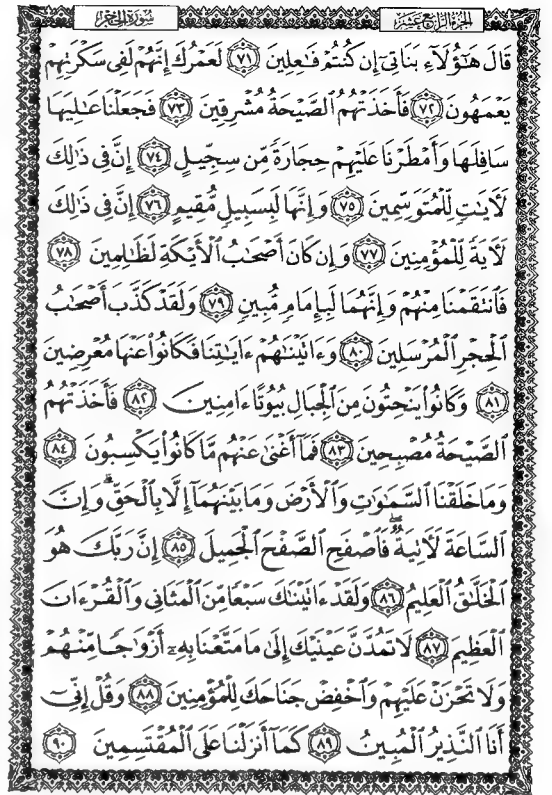 سُورَةُ الحِجْرِ الجُزْءُ الرَّابِعَ عَشَرَ
قَالَ هَٰٓؤُلَآءِ بَنَاتِىٓ إِن كُنتُمْ فَٰعِلِينَ ٧١ لَعَمْرُكَ إِنَّهُمْ لَفِى سَكْرَتِهِمْ
يَعْمَهُونَ ٧٢ فَأَخَذَتْهُمُ ٱلصَّيْحَةُ مُشْرِقِينَ ٧٣ فَجَعَلْنَا عَٰلِيَهَا
سَافِلَهَا وَأَمْطَرْنَا عَلَيْهِمْ حِجَارَةً مِّن سِجِّيلٍ ٧٤ إِنَّ فِى ذَٰلِكَ
لَءَايَٰتٍ لِّلْمُتَوَسِّمِينَ ٧٥ وَإِنَّهَا لَبِسَبِيلٍ مُّقِيمٍ ٧٦ إِنَّ فِى ذَٰلِكَ
لَءَايَةً لِّلْمُؤْمِنِينَ ٧٧ وَإِن كَانَ أَصْحَٰبُ ٱلْأَيْكَةِ لَظَٰلِمِينَ ٧٨
فَٱنتَقَمْنَا مِنْهُمْ وَإِنَّهُمَا لَبِإِمَامٍ مُّبِينٍ ٧٩ وَلَقَدْ كَذَّبَ أَصْحَٰبُ
ٱلْحِجْرِ ٱلْمُرْسَلِينَ ٨٠ وَءَاتَيْنَٰهُمْ ءَايَٰتِنَا فَكَانُوا۟ عَنْهَا مُعْرِضِينَ
٨١ وَكَانُوا۟ يَنْحِتُونَ مِنَ ٱلْجِبَالِ بُيُوتًا ءَامِنِينَ ٨٢ فَأَخَذَتْهُمُ
ٱلصَّيْحَةُ مُصْبِحِينَ ٨٣ فَمَآ أَغْنَىٰ عَنْهُم مَّا كَانُوا۟ يَكْسِبُونَ ٨٤
وَمَا خَلَقْنَا ٱلسَّمَٰوَٰتِ وَٱلْأَرْضَ وَمَا بَيْنَهُمَآ إِلَّا بِٱلْحَقِّ ۗ وَإِنَّ
ٱلسَّاعَةَ لَءَاتِيَةٌ ۖ فَٱصْفَحِ ٱلصَّفْحَ ٱلْجَمِيلَ ٨٥ إِنَّ رَبَّكَ هُوَ
ٱلْخَلَّٰقُ ٱلْعَلِيمُ ٨٦ وَلَقَدْ ءَاتَيْنَٰكَ سَبْعًا مِّنَ ٱلْمَثَانِى وَٱلْقُرْءَانَ
ٱلْعَظِيمَ ٨٧ لَا تَمُدَّنَّ عَيْنَيْكَ إِلَىٰ مَا مَتَّعْنَا بِهِۦٓ أَزْوَٰجًا مِّنْهُمْ
وَلَا تَحْزَنْ عَلَيْهِمْ وَٱخْفِضْ جَنَاحَكَ لِلْمُؤْمِنِينَ ٨٨ وَقُلْ إِنِّىٓ
أَنَا ٱلنَّذِيرُ ٱلْمُبِينُ ٨٩ كَمَآ أَنزَلْنَا عَلَى ٱلْمُقْتَسِمِينَ ٩٠